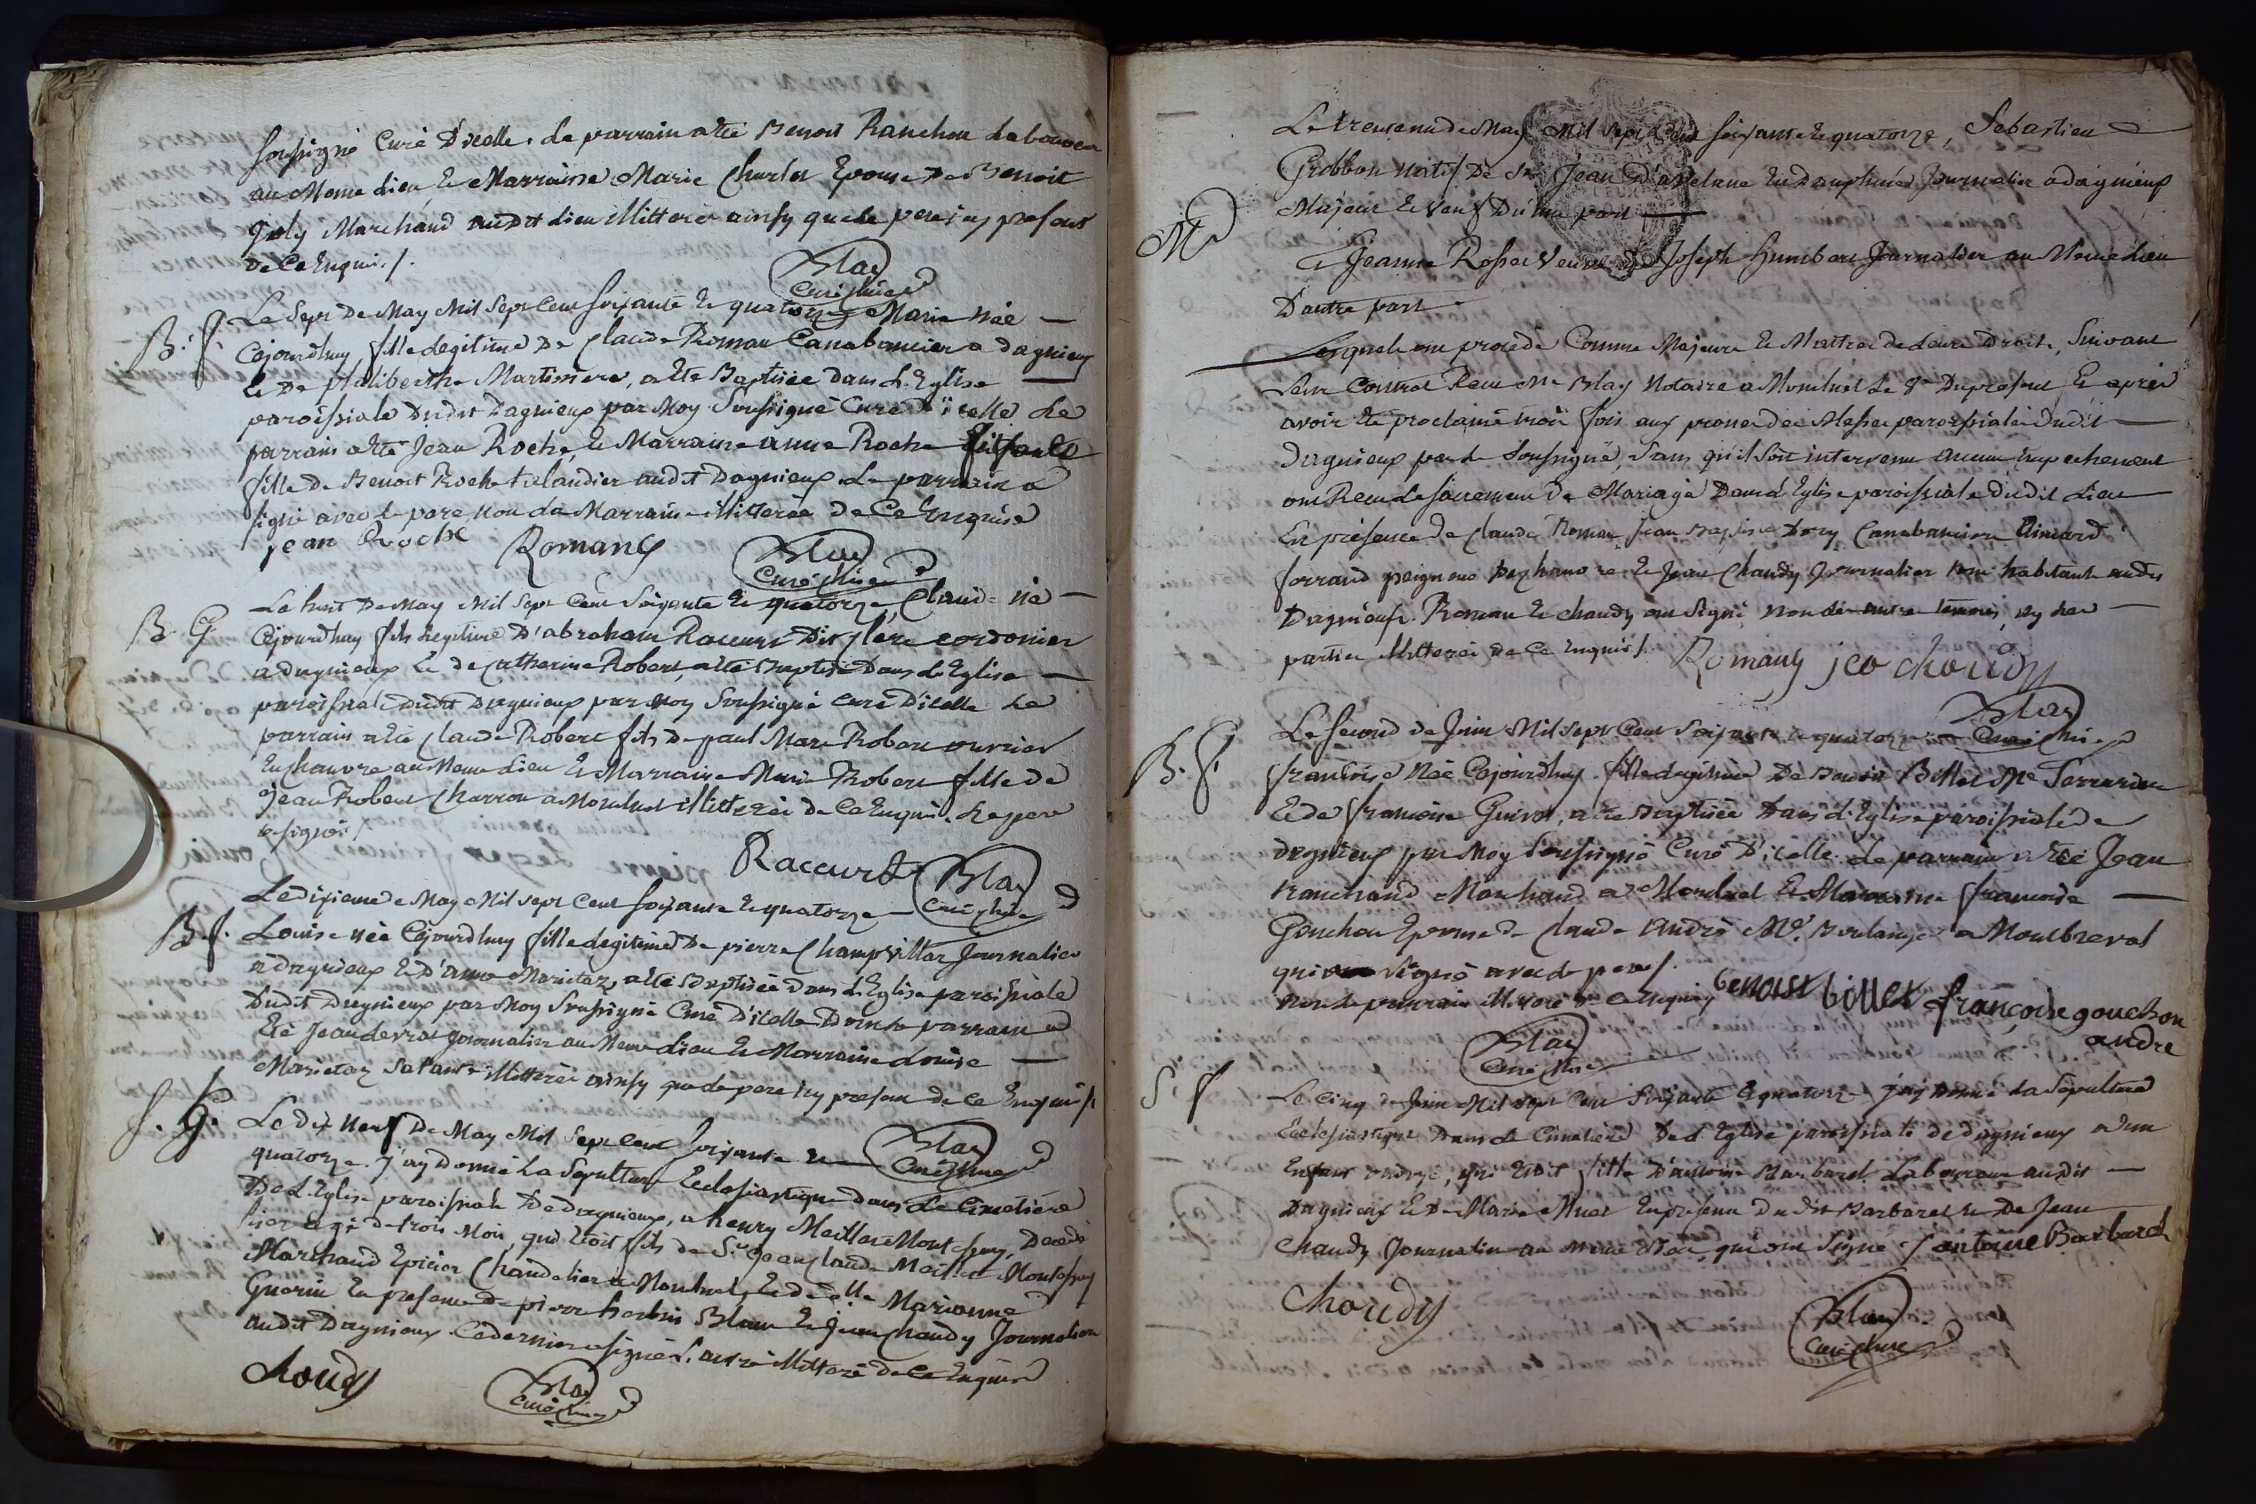 soussigné Curé D'icelle. le parrain a été Benoit Ranchon Laboureur
au Meme lieu, et Marraine Marie Charlet Epouse De Benoit
Joly Marchand audit lieu illitterés ainsy que le pere icy present
De Ce Enquis ./.
Blay
Curé
B. f. Le Sept De May Mil Sept Cent soixante et quatorze Marie née
Cejourdhuy, fille legitime De Claude Roman Canabancier a dagnieux
et De philiberthe Martiniere, a été Baptisée dans L'Eglise
paroissiale Dudit Dagnieux par Moy Soussigné Curé D'icelle Le
parrain a été Jean Roche, et Marraine anne Roche
fille De Benoit Roche taillandier audit Dagnieux. Le parrain a
signé avec le pere, non La Marraine illitterée De Ce Enquise
jean Roche Romans Blay
Curé
B. G. Le huit De May Mil Sept Cent Soixante et quatorze, Claude né
Cejourdhuy fils Legitime D'abraham Raccurt Dit cordonier
a dagnieux et de Catherine Robert, a été Baptisé Dans L'Eglise
paroissiale Dudit Dagnieux par Moy Soussigné Curé D'icelle Le
parrain a été Claude Robert fils De paul Marc Robert ouvrier
En chanvre au Meme lieu Et Marraine Marie Robert fille de
Jean Robert Charron a Montluel illitterés de Ce Enquis. Le pere
a signé ./.
Raccurt Blay
Curé
B. f. Le dixieme De May Mil Sept Cent soixante et quatorze
Louise née Cejourdhuy fille legitime De pierre Champvillar Journalier
a dagnieux Et D'anne Marietaz, a été Baptisée dans L'Eglise paroissiale
Dudit Dagnieux par Moy Soussigné Curé D'icelle Dont le parrain a
Eté Jean devrat Journalier au Meme lieu Et Marraine Louise
Marietaz Sa tante illitterés ainsy que le pere icy present de Ce Enquis ./.
Blay
Curé
S. G. Le dix neuf De May Mil Sept Cent soixante et
quatorze. J'ay Donné La Sepulture Ecclesiastique dans Le Cimetiere
De L'Eglise paroissiale De dagnieux, a henry Meillet Montessuy, Decedé
hier agé de trois Mois, qui Etoit fils de Sr. Jean Claude Meillet Montessuy
Marchand Epicier Chandelier a Montluel, Et de dlle Marianne
Guerin En presence de pierre Blanc Et Jean Chaudy Journaliers
audit Dagnieux. Ce dernier a signé L'autre illitteré de Ce Enquis
Choudy Blay
Curé
Le trente un de May Mil Sept Cent soixante et quatorze, Sebastien
Grobbon natif De St. Jean D'avelane En Dauphiné Journalier a dagnieux
Majeur Et veuf D'une part
Md Et Jeanne Rosset Veuve de Joseph Humbert Journalier au Meme Lieu
D'autre part
Lesquels ont procédé Comme Majeurs Et Maitres de Leurs Droits, Suivant
Leur Contrat Recu Me. Blay Notaire a Montluel Le Dupresent, Et après
avoir été proclamé trois fois aux prones des Messes paroissiales Dudit
Dagnieux par Le Soussigné, Sans qu'il Soit intervenu aucun Empechement
ont Recu Le Sacrement De Mariage Dans L'Eglise paroissiale Dudit Lieu
En présence De Claude Roman, Jean Baptiste Dory Canabanciers
ferrand peigneur De chanvre Et Jean Chaudy Journalier tous habitants audit
Dagnieux. Roman Et Chaudy ont Signé non Les autres temoins, ny Les
parties illitterés De Ce Enquis ./. Romans jea choudy
Blay
Curé
B. f. Le Second de Juin Mil Sept Cent Soixante et quatorze
françoise Née Cejourdhuy fille legitime De Benoit Billet Me. Serrurier
Et de françoise Guivot, a été Baptisée Dans L'Eglise paroissiale de
dagnieux par Moy Soussigné Curé D'icelle. Le parrain a été Jean
Ranchand Marchand a Montluel Et Marraine françoise
Gouchon Epouse De Claude André Me. Boulanger a Montbreval
qui a Signé avec le pere ./.
Non Le parrain illitteré de Ce Enquis benoist billet françoise gouchon
andre
Blay
Curé
S. f. Le Cinq De Juin Mil Sept Cent Soixante Et quatorze j'ay Donné La Sépulture
Ecclesiastique Dans Le Cimetiere De L'Eglise paroissiale de dagnieux a Un
Enfant ondoyé, qui Etoit fille D'antoine Barbaret Laboureur audit
Dagnieux Et De Marie Muet En presence Dudit Barbaret Et De Jean
Chaudy Journalier au Meme Lieu, qui ont Signé ./ antoine Barbaret
choudy
Blay
Curé